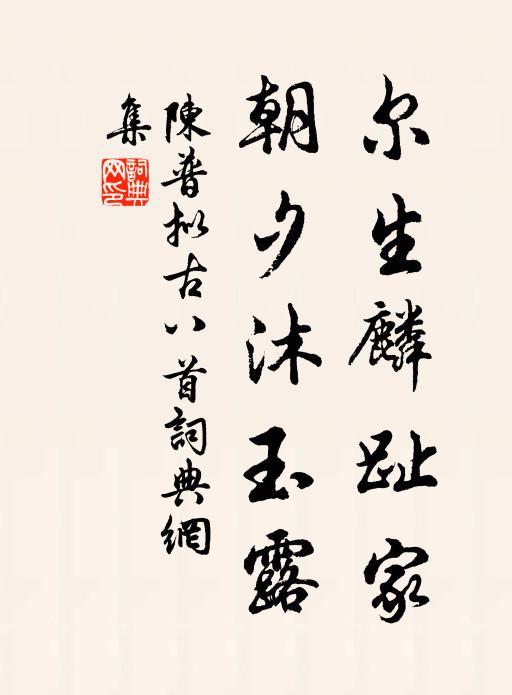 尔生麟趾家
朝夕沐玉露
陳普拟古八首詞典網
集
詞典網印